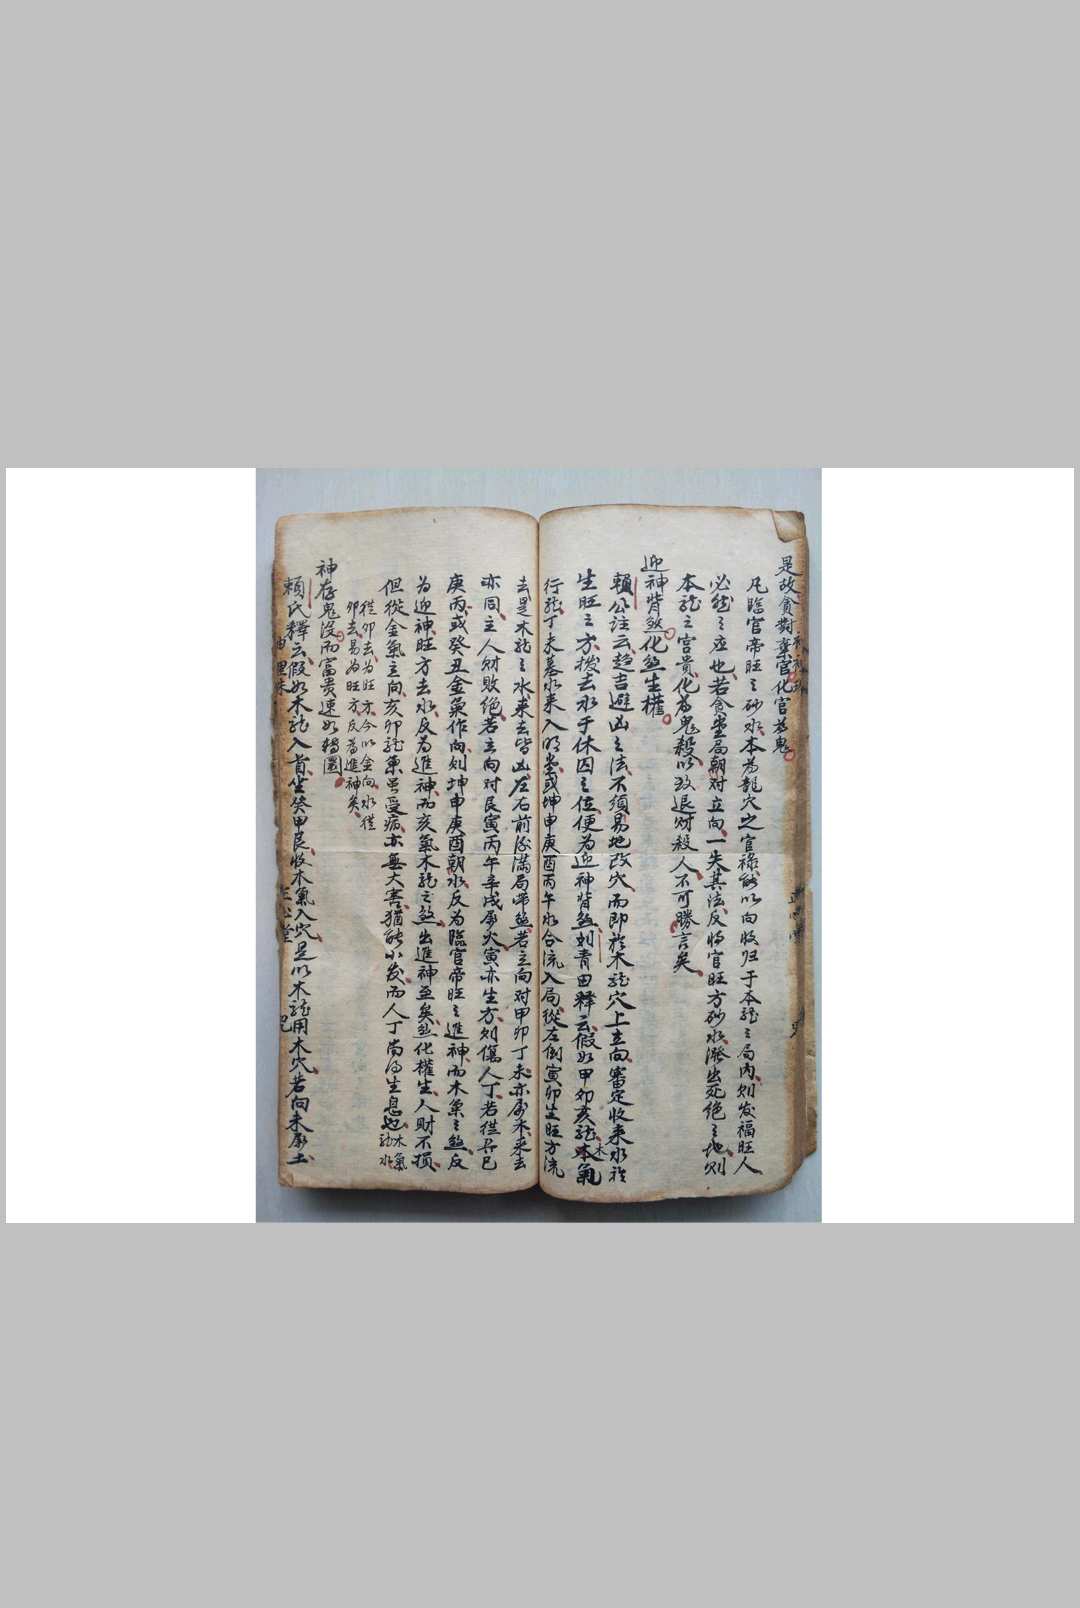 是故貪對棄官化官為鬼
凡臨官帝旺之砂水本為龍穴之官祿能以向收归于本龍之局內則发福旺人
必然之应也若貪堂局朝对立向一失其法反将官旺方砂水潑出死絕之地則
本龍之官貴化為鬼殺以致退财殺人不可勝言矣
迎神背煞化煞生權
賴公註云趋吉避凶之法不須易地改穴而即於木龍穴上立向審定收来水於
生旺之方撥去水于休囚之位便为迎神背煞刘青田釋云假如甲卯亥龍本木氣
行龍丁未墓水来入明堂或坤申庚酉丙午水合流入局從左倒寅卯生旺方流
去是木龍之水来去皆凶左右前後滿局帶煞若立向对甲卯丁未亦屬木来去
亦同主人财敗絕若立向对艮寅丙午辛戌屬火寅亦生方則傷人丁若從巽巳
庚丙或癸丑金氣作向則坤申庚酉朝水反为臨官帝旺之進神而木氣之煞反
为迎神旺方去水反为進神而亥氣木龍之煞出進神至矣煞化權生人财不損
但從金氣立向亥卯龍氣虽受病亦無大害猶能小发而人丁尚得生息也木氣龍水
從卯去为旺方今以金向水從
卯去易为旺方反为進神矣
神存鬼没而富贵速如轉圜
賴氏釋云假如木龍入首坐癸甲艮收木氣入穴是以木龍用木穴若向未屬土